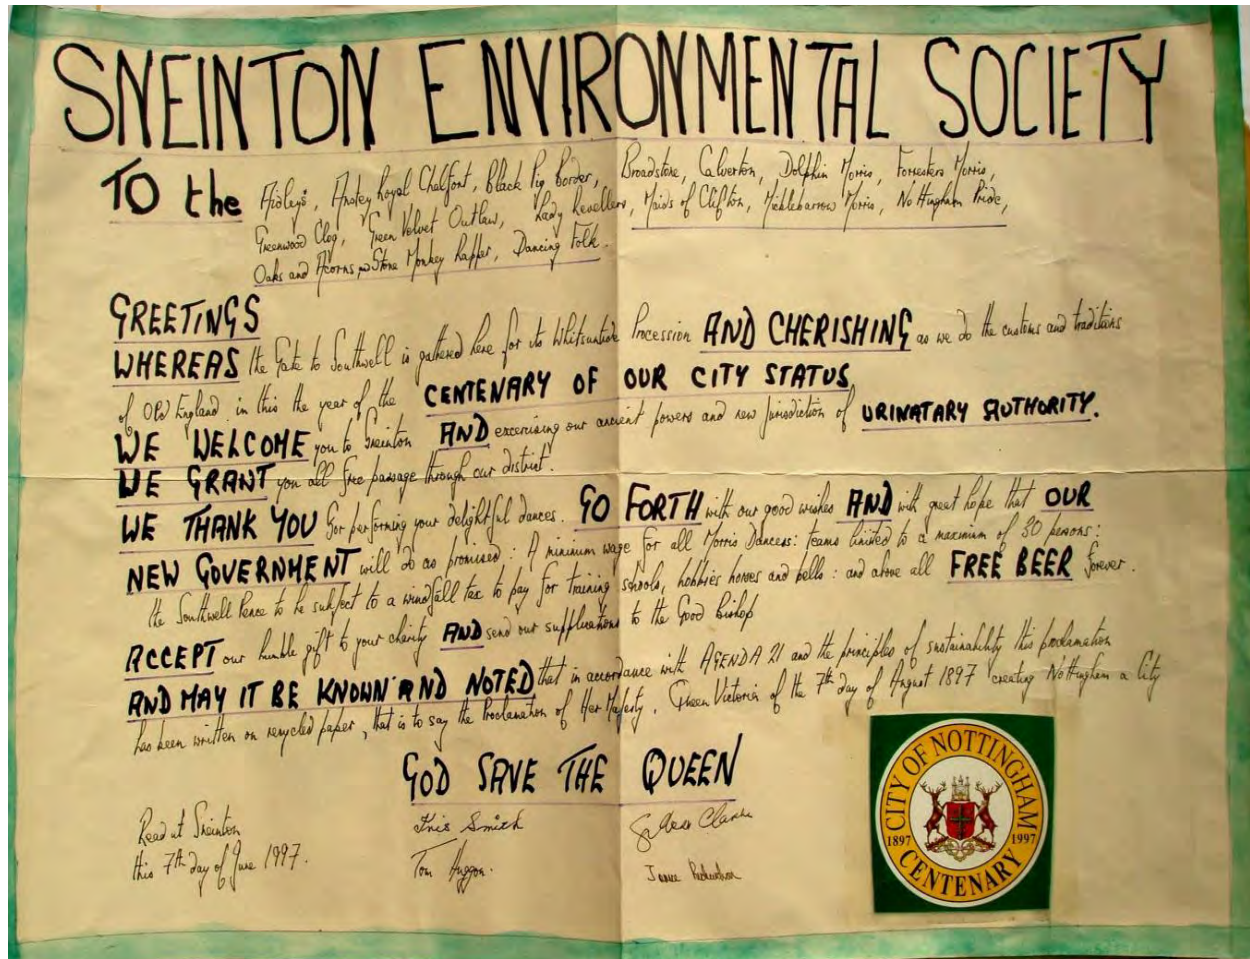 SNEINTON ENVIRONMENTAL SOCIETY
TO the Anstey Royal Chalfont, Black Pig Border, Broadstone, Calverton, Dolphin Morris, Forresters Morris,
Greenwood Clog, Green Velvet Outlaw, Lady Revellers, Maids of Clifton, Micklebarrow Morris, Nottingham Pride,
Oaks and Acorns and Stone Monkey Rapper, Dancing Folk.
GREETINGS
WHEREAS the Gate to Southwell is gathered here for its Whitsuntide Procession AND CHERISHING as we do the customs and traditions
of Old England in this the year of the CENTENARY OF OUR CITY STATUS
WE WELCOME you to Sneinton AND excercising our ancient powers and new jurisdiction of URINATARY AUTHORITY.
WE GRANT you all free passage through our district.
WE THANK YOU for performing your delightful dances. GO FORTH with our good wishes AND with great hope that OUR
NEW GOVERNMENT will do as promised: A minimum wage for all Morris Dancers: teams limited to a maximum of 30 persons:
the Southwell Pence to be subject to a windfall tax to pay for training schools, hobbies horses and bells: and above all FREE BEER forever.
ACCEPT our humble gift to your charity AND send our supplications to the Good Bishop
AND MAY IT BE KNOWN AND NOTED that in accordance with AGENDA 21 and the principles of sustainability this proclamation
has been written on recycled paper, that is to say the Proclamation of Her Majesty, Queen Victoria of the 7th day of August 1897 creating Nottingham a City
GOD SAVE THE QUEEN
Read at Sneinton
this 7th day of June 1997.
Smith
Tom Huggon.
Clarke
Richardson
CITY OF NOTTINGHAM
1897 1997
CENTENARY